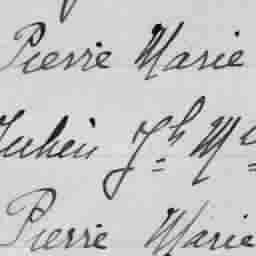 Pierre Marie
Julien Jh Me
Pierre Marie